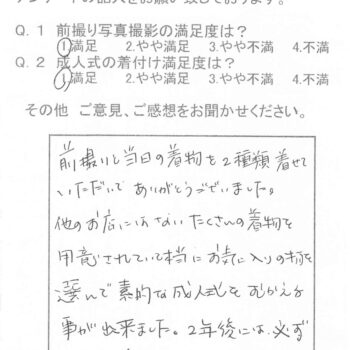 アンケートの記入をお願い致しております。
Q. 1 前撮り写真撮影の満足度は？
1.満足 2.やや満足 3.やや不満 4.不満
Q. 2 成人式の着付け満足度は？
1.満足 2.やや満足 3.やや不満 4.不満
その他 ご意見、ご感想をお聞かせください。
前撮りと当日の着物を2種類着せて
いただいて ありがとうございました。
他のお店にはないたくさんの着物を
用意されていて本当にお気に入りの柄を
選んで素敵な成人式をむかえる
事が出来ました。2年後には、必ず